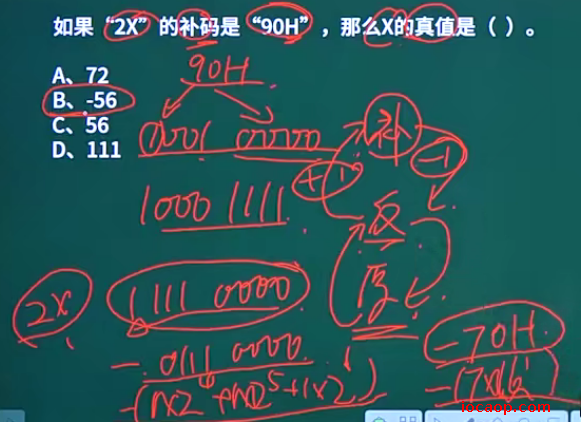 如果“2X”的补码是“90H”，那么X的真值是（ ）。
A、72
B、-56
C、56
D、111
90H
1001 0000
补
+1
-1
1000 1111
反
原
2X
1111 0000
-0111 0000
-70H
-(7×16
locaop.com